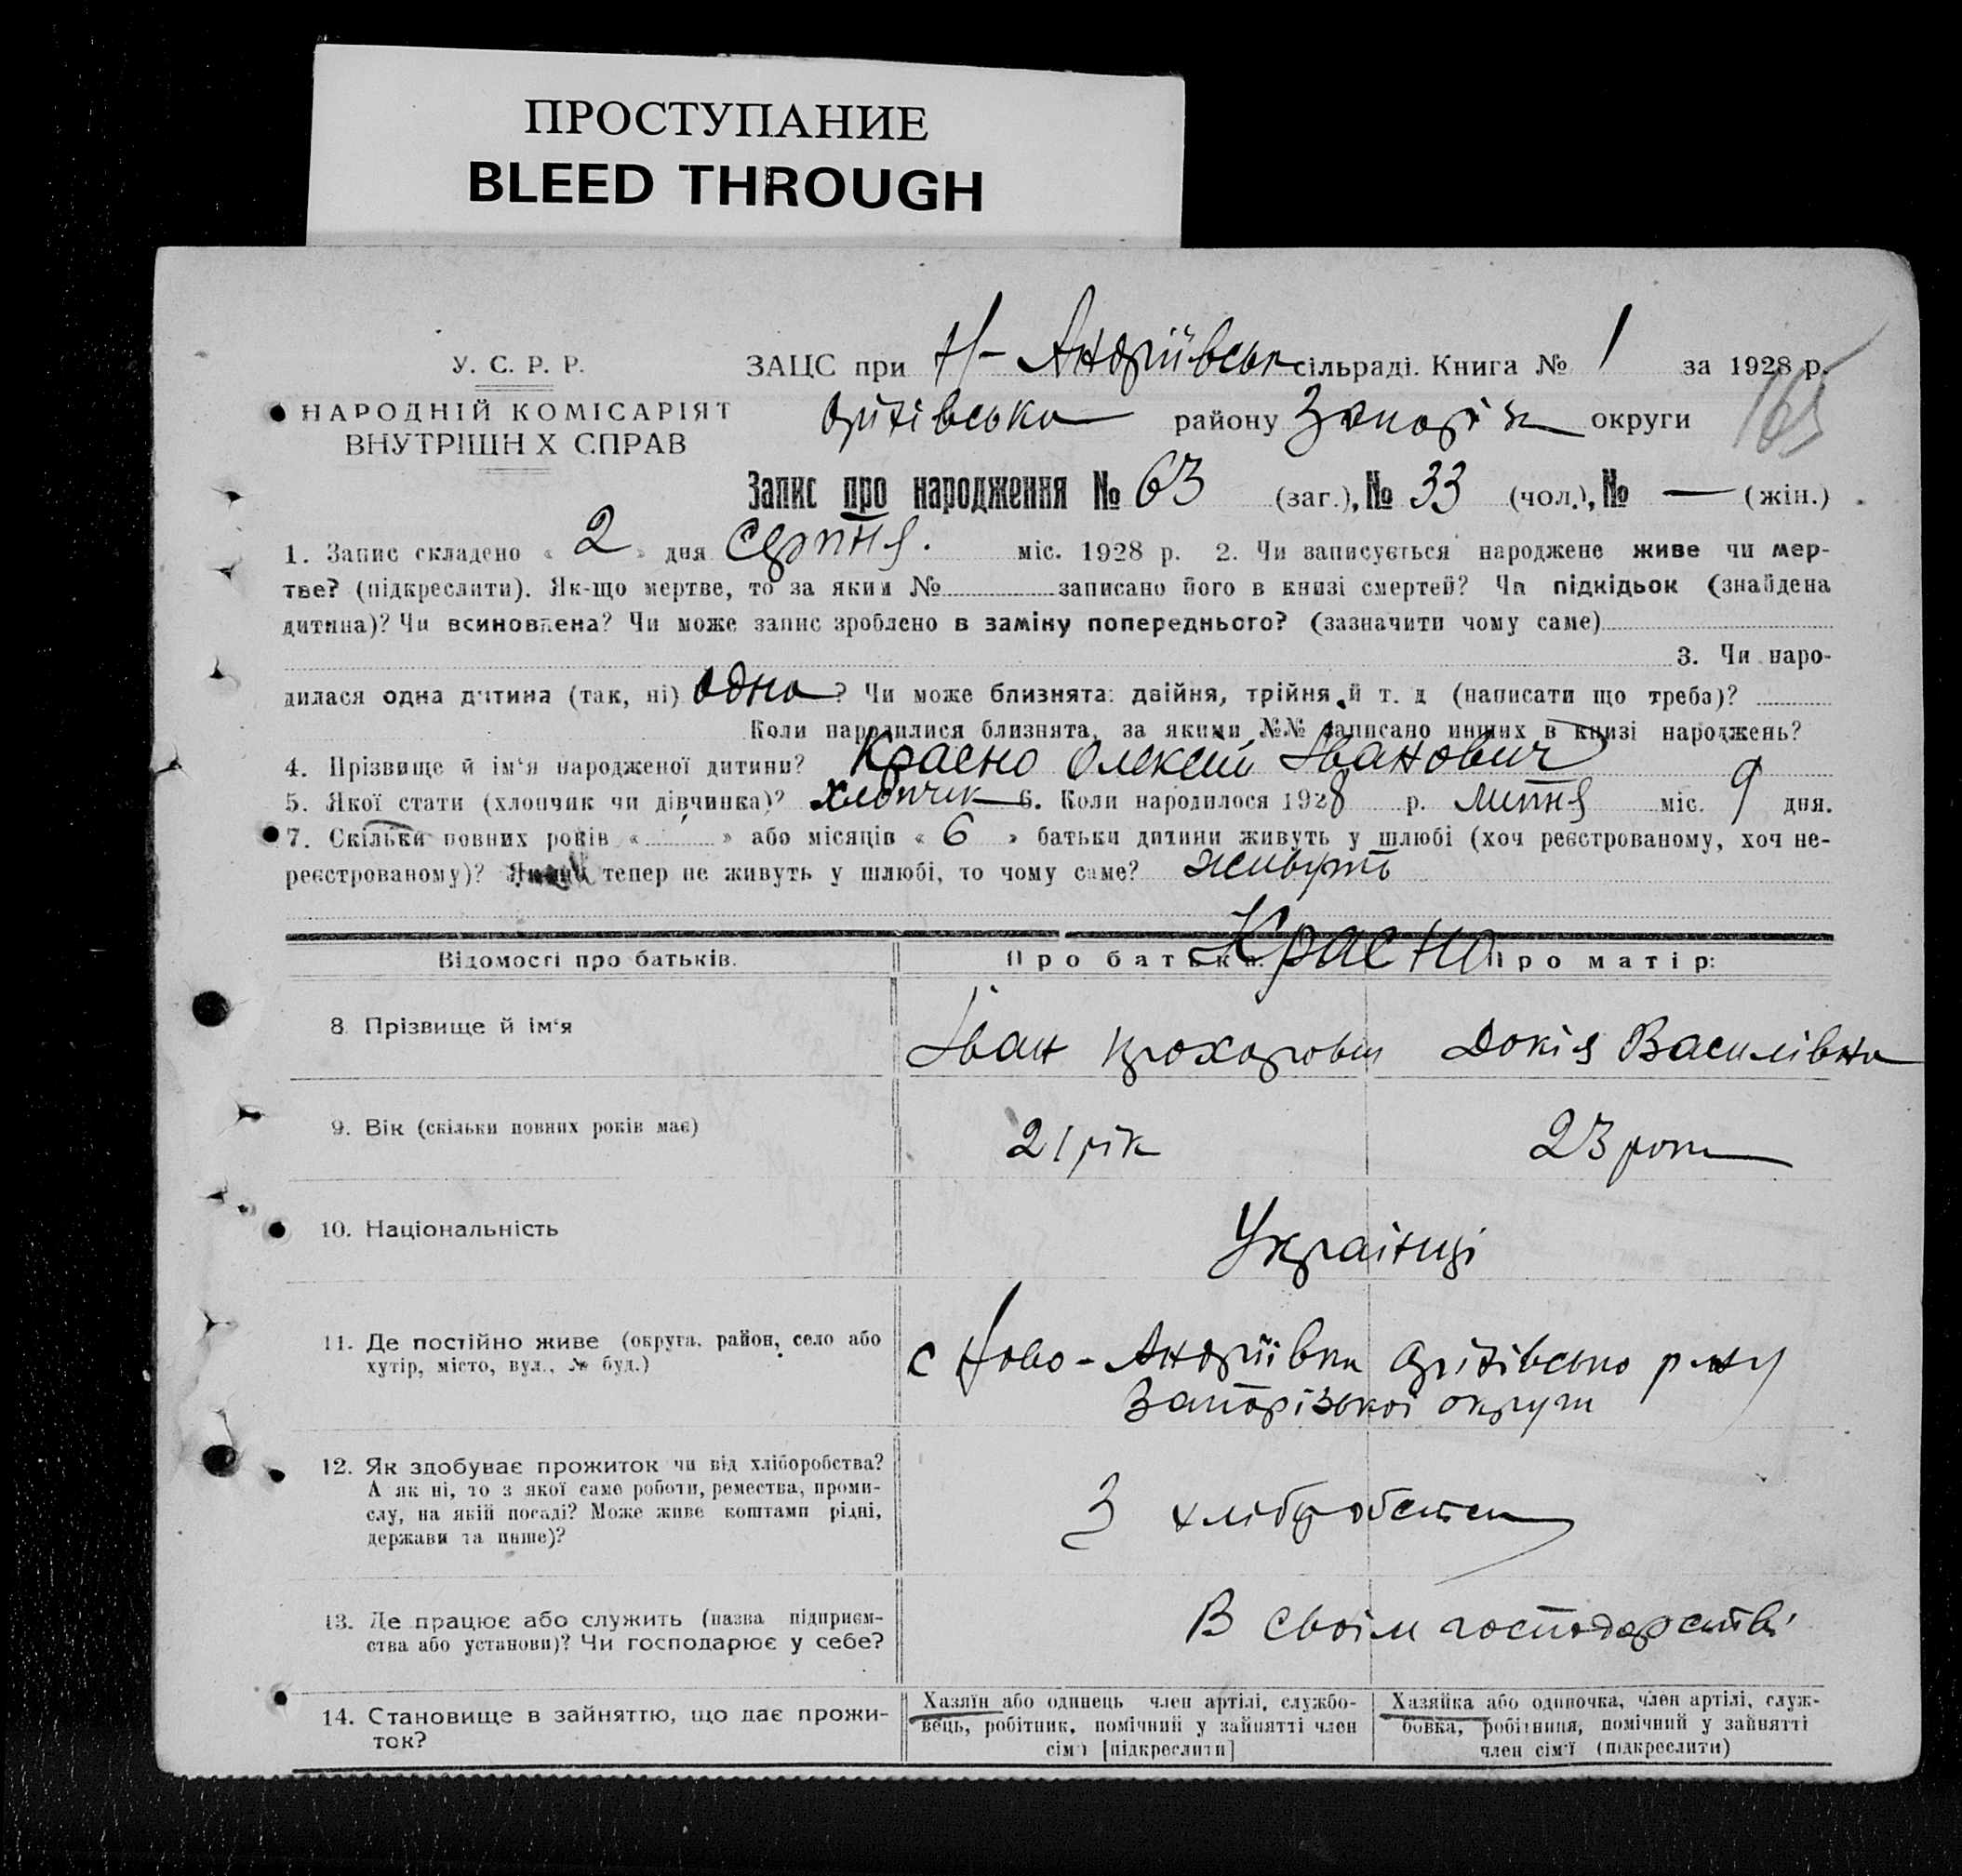 ПРОСТУПАНИЕ
BLEED THROUGH
У. С. Р. Р.
НАРОДНІЙ КОМІСАРІЯТ
ВНУТРІШН Х СПРАВ
ЗАЦС при Н-Андріївськ сільраді. Книга № 1 за 1928 р.
району Запоріз округи
165
Запис про народження № 63 (заг.), № 33 (чол.), № — (жін.)
1. Запис складено « 2 » дня серпня. міс. 1928 р. 2. Чи записується народжене живе чи мер-
тве? (підкреслити). Як-що мертве, то за яким № записано його в книзі смертей? Чи підкідьок (знайдена
дитина)? Чи всиновлена? Чи може запис зроблено в заміну попереднього? (зазначити чому саме)
3. Чи наро-
дилася одна дитина (так, ні) одна? Чи може близнята: двійня, трійня й т. д (написати що треба)?
Коли народилися близнята, за якими №№ записано инших в книзі народжень?
4. Прізвище й ім'я народженої дитини? Красно Олексій Іванович
5. Якої стати (хлопчик чи дівчинка)? хлопчик 6. Коли народилося 1928 р. липня міс. 9 дня.
7. Скільки повних років « » або місяців « 6 » батьки дитини живуть у шлюбі (хоч реєстрованому, хоч не-
реєстрованому)? тепер не живуть у шлюбі, то чому саме? живуть
Відомості про батьків.
Про батька:
Про матір:
Красно
8. Прізвище й ім'я
Іван Прохорович
Докія Василівна
9. Вік (скільки повних років має)
21 рік
23 роки
10. Національність
Українці
11. Де постійно живе (округа, район, село або
хутір, місто, вул., № буд.)
с Ново-Андріївки р-ну
Запорізької округи
12. Як здобуває прожиток чи від хліборобства?
А як ні, то з якої саме роботи, ремества, проми-
слу, на якій посаді? Може живе коштами рідні,
держави та инше)?
З хліборобства
13. Де працює або служить (назва підприєм-
ства або установи)? Чи господарює у себе?
В своїм господарстві
14. Становище в зайняттю, що дає прожи-
ток?
Хазяїн або одинець член артілі, службо-
вець, робітник, помічний у зайнятті член
сім'ї [підкреслити]
Хазяйка або одиночка, член артілі, служ-
бовка, робітниця, помічний у зайнятті
член сім'ї (підкреслити)